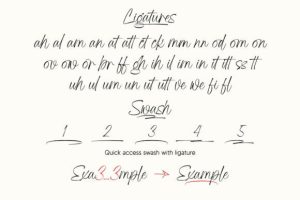 Ligatures
ah al am an at att ct ck mm nn od om on
ov ow or br ff gh ih il im in it tt ss tt
uh ul um un ut utt ve we fi fl
Swash
1 2 3 4 5
Quick access swash with ligature
Exa3_3mple → Example